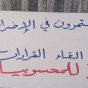 مستمرون في الإضراب
الغاء القرارات
للمحسوبية